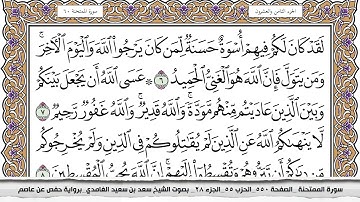 الجزء الثامن والعشرون
سورة الممتحنة ٦٠
لَقَدْ كَانَ لَكُمْ فِيهِمْ أُسْوَةٌ حَسَنَةٌ لِّمَن كَانَ يَرْجُوا۟ ٱللَّهَ وَٱلْيَوْمَ ٱلْـَٔاخِرَ ۚ
وَمَن يَتَوَلَّ فَإِنَّ ٱللَّهَ هُوَ ٱلْغَنِىُّ ٱلْحَمِيدُ ٦ ۞ عَسَى ٱللَّهُ أَن يَجْعَلَ بَيْنَكُمْ
وَبَيْنَ ٱلَّذِينَ عَادَيْتُم مِّنْهُم مَّوَدَّةً ۚ وَٱللَّهُ قَدِيرٌ ۚ وَٱللَّهُ غَفُورٌ رَّحِيمٌ ٧
لَّا يَنْهَىٰكُمُ ٱللَّهُ عَنِ ٱلَّذِينَ لَمْ يُقَـٰتِلُوكُمْ فِى ٱلدِّينِ وَلَمْ يُخْرِجُوكُم
مِّن دِيَـٰرِكُمْ أَن تَبَرُّوهُمْ وَتُقْسِطُوٓا۟ إِلَيْهِمْ ۚ إِنَّ ٱللَّهَ يُحِبُّ ٱلْمُقْسِطِينَ ٨
سورة الممتحنة_الصفحة ٥٥٠_الحزب ٥٥_الجزء ٢٨_بصوت الشيخ سعد بن سعيد الغامدي_برواية حفص عن عاصم